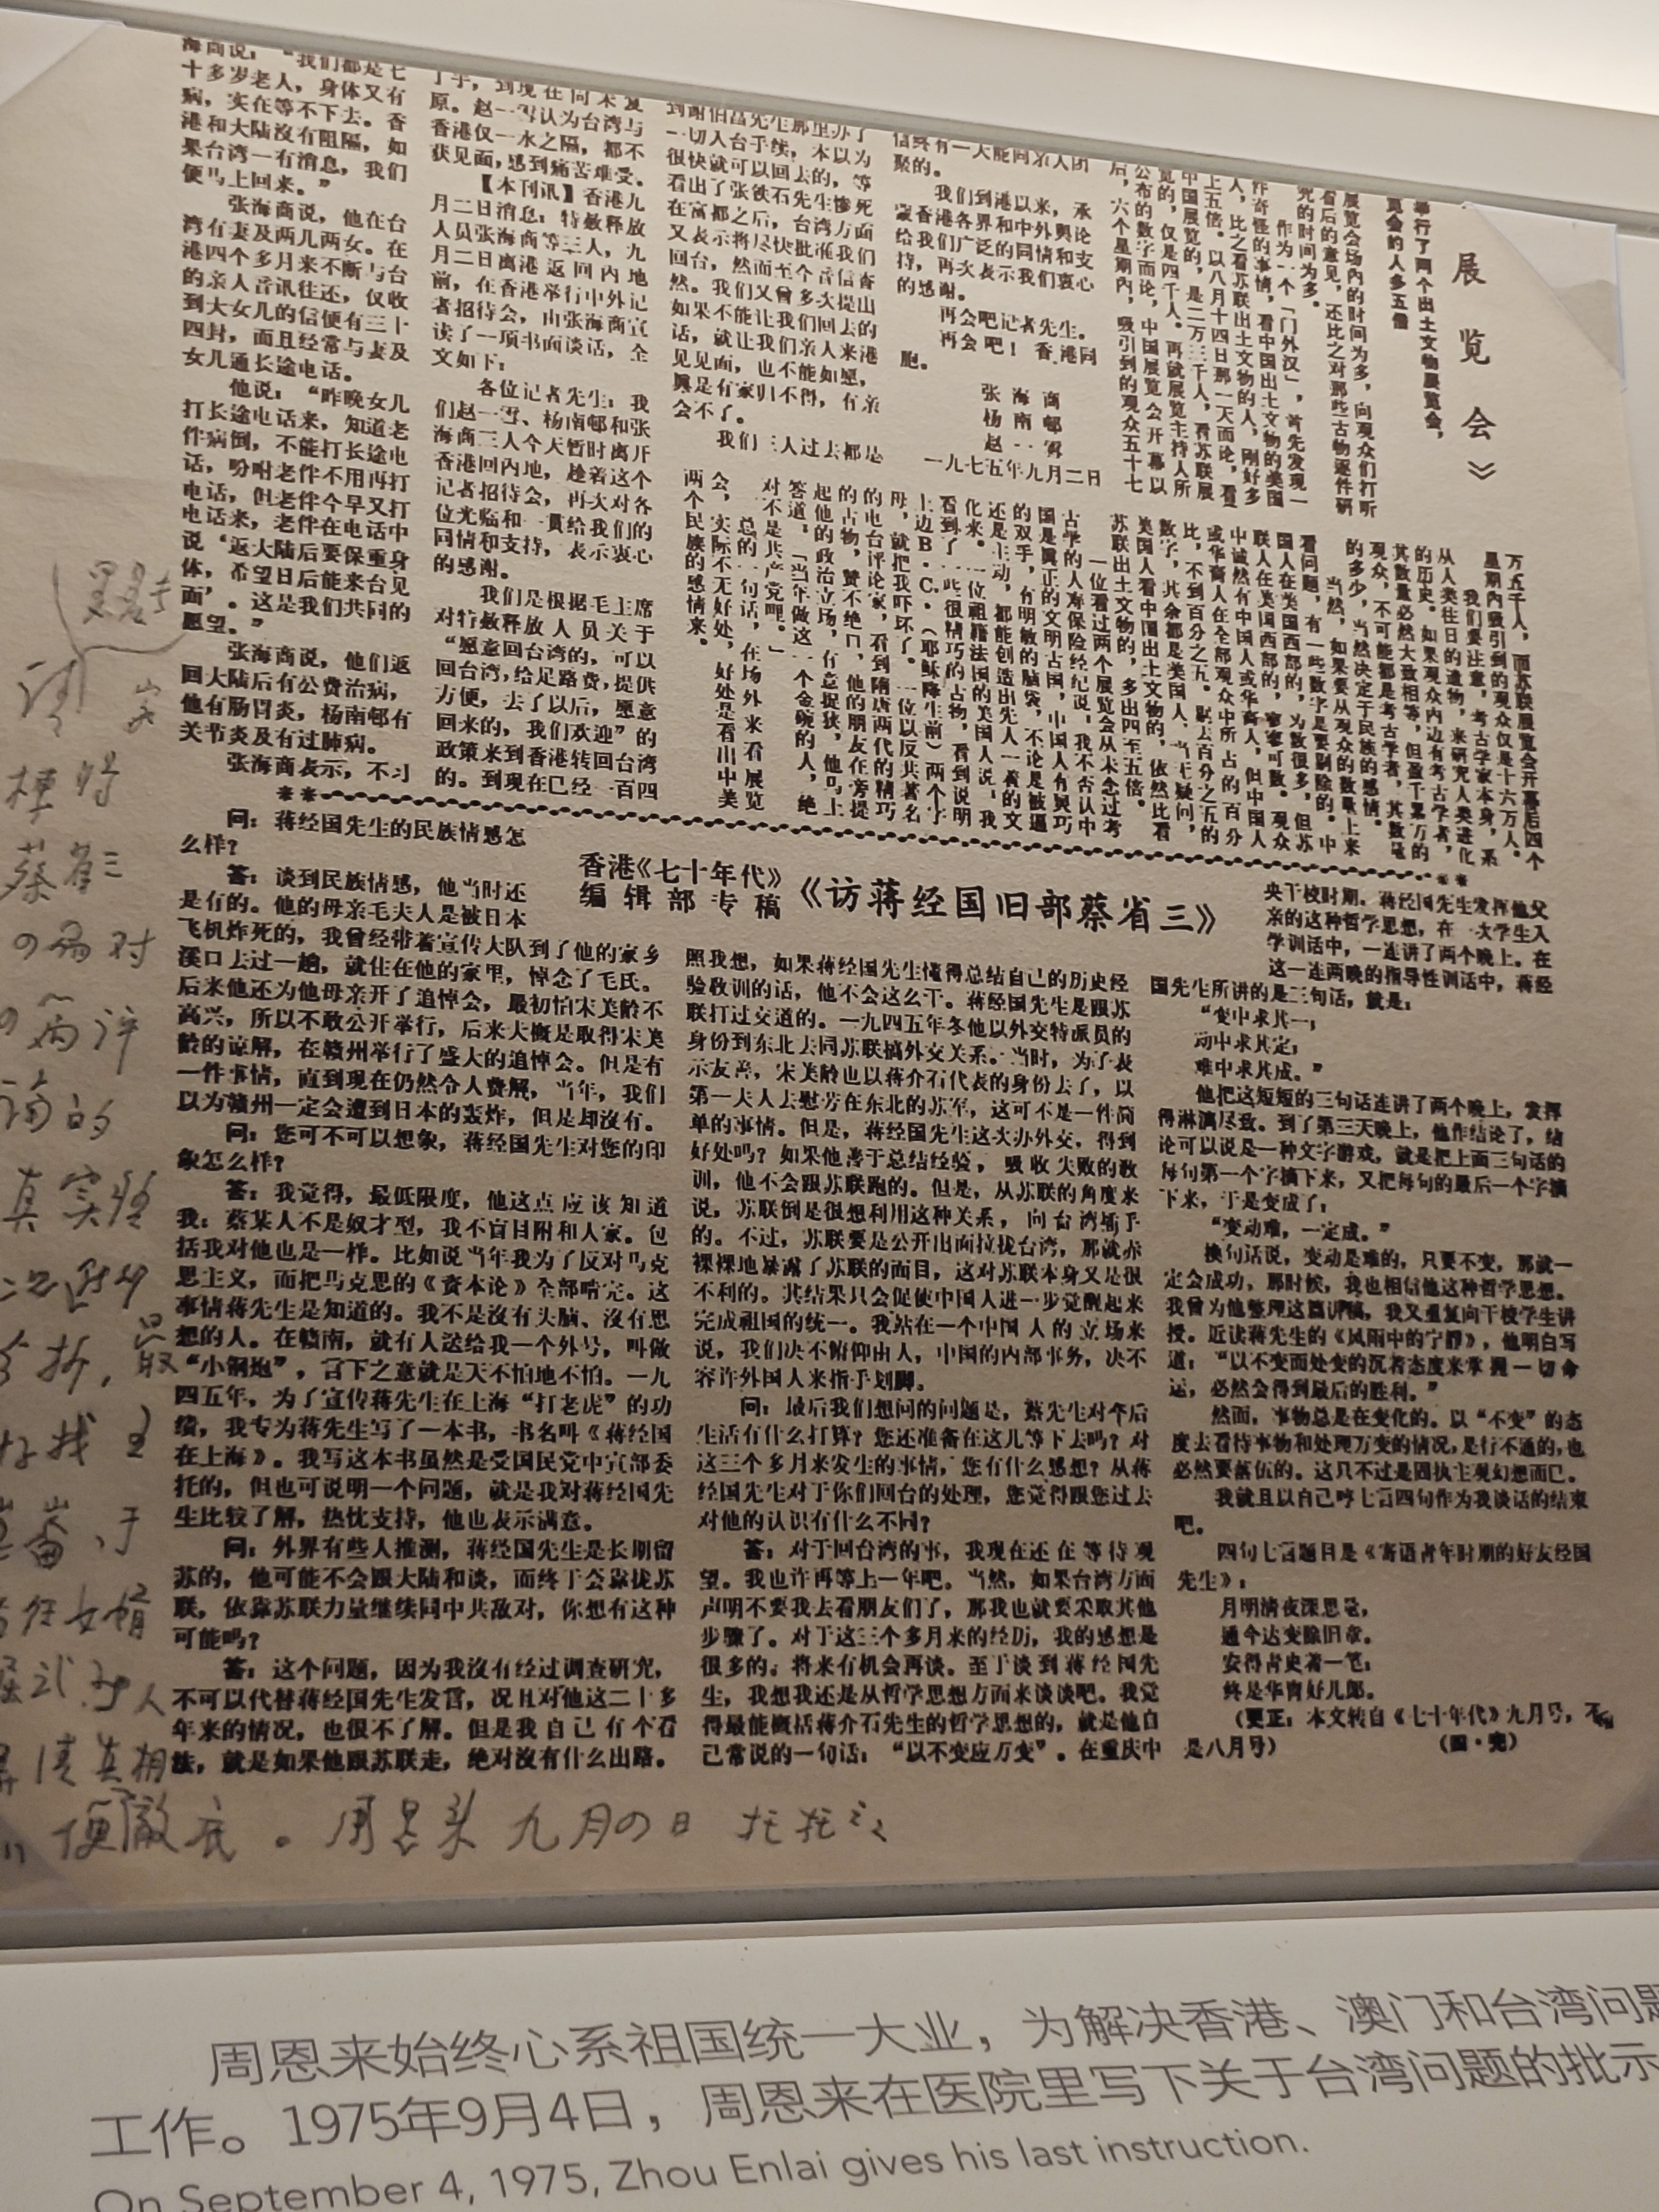 海商说：“我们都是七
十多岁老人，身体又有
病，实在等不下去。香
港和大陆沒有阻隔，如
果台湾一有消息，我们
便马上回来。”
张海商说，他在台
湾有妻及两儿两女。在
港四个多月来不断与台
的亲人音讯往还，仅收
到大女儿的信便有三十
四封，而且经常与妻及
女儿通长途电话。
他说：“昨晚女儿
打长途电话来，知道老
伴病倒，不能打长途电
话，吩咐老伴不用再打
电话，但老伴今早又打
电话来，老伴在电话中
说‘返大陆后要保重身
体，希望日后能来台见
面’。这是我们共同的
愿望。”
张海商说，他们返
回大陆后有公费治病，
他有肠胃炎，杨南邨有
关节炎及有过肺病。
张海商表示，不习
了手，到现在尚未复
原。赵一雪认为台湾与
香港仅一水之隔，都不
获见面，感到痛苦难受。
【本刊讯】香港九
月二日消息：特赦释放
人员张海商等三人，九
月二日离港返回内地
前，在香港举行中外记
者招待会，由张海商宣
读了一项书面谈话，全
文如下：
各位记者先生：我
们赵一雪、杨南邨和张
海商三人今天暂时离开
香港回内地，趁着这个
记者招待会，再次对各
位光临和一贯给我们的
同情和支持，表示衷心
的感谢。
我们是根据毛主席
对特赦释放人员关于
“愿意回台湾的，可以
回台湾，给足路费，提供
方便，去了以后，愿意
回来的，我们欢迎”的
政策来到香港转回台湾
的。到现在已经一百四
到谢伯昌先生那里办了
一切入台手续，本以为
很快就可以回去的，等
看出了张铁石先生惨死
在富都之后，台湾方面
又表示将尽快批准我们
回台，然而至今音信杳
然。我们又曾多次提出
如果不能让我们回去的
话，就让我们亲人来港
见见面，也不能如愿，
真是有家归不得，有亲
会不了。
我们三人过去都是
信终有一天能同亲人团
聚的。
我们到港以来，承
蒙香港各界和中外舆论
给我们广泛的同情和支
持，再次表示我们衷心
的感谢。
再会吧记者先生。
再会吧！香港同
胞。
张海商
杨南邨
赵一雪
一九七五年九月二日
展览会》
举行了两个出土文物展览会，
览会的人多五倍
展览会场内的时间为多，向观众们打听
看后的意见，还比之对那些古物逐件研
究的时间为多。
作为一个「门外汉」，首先发现一
件奇怪的事情，看中国出土文物的美国
人，比之看苏联出土文物的人，刚好多
上五倍。以八月十四日那一天而论，看
中国展览的，是二万三千人，看苏联展
览的，仅是四千人。再就展览主持人所
公布的数字而论，中国展览会开幕以
后，六个星期内，吸引到的观众五十七
万五千人，而苏联展览会开幕后四个
星期内吸引到的观众仅是十六万人。
我们要注意，考古学家本身，系
从人类往日的遗物，来研究人类进化
的历史。如果观众内边有考古学者，
其数量必然大致相等，但盈千累万的
观众，不可能都是考古学者，其数量
的多少，当然决定于民族的感情。
当然，如果要从观众的数量上来
看问题，有一些数字是要剔除的。中
国人在美国西部的，为数很多，但苏
联人在美国西部的，寥寥可数。观众
中诚然有中国人或华裔人，但中国人
或华裔人在全部观众中所占的百分
比，不到百分之五。除去百分之五的
数字，其余都是美国人，当无疑问，
美国人看中国出土文物的，依然比看
苏联出土文物的，多出四至五倍。
一位看过两个展览会从未念过考
古学的人寿保险经纪说，我不否认中
国是真正的文明古国，中国人有奥巧
的双手，有明敏的脑袋，不论是被逼
还是主动，都能创造出先人一着的文
化来。一位祖籍法国的美国人说，我
看到了一些很精巧的古物，看到说明
上边B·C·（耶稣降生前）两个字
母，就把我吓坏了。一位以反共著名
的电台评论家，看到隋唐两代的精巧
的古物，赞不绝口，他的朋友在旁提
起他的政治立场，有意捉狭，他马上
答道，「当年做这一个金碗的人，绝
对不是共产党哩。」
总的一句话，在场外来看展览
会，实际不无好处，好处是看出中美
两个民族的感情来。
香港《七十年代》
编辑部专稿
《访蒋经国旧部蔡省三》
问：蒋经国先生的民族情感怎
么样？
答：谈到民族情感，他当时还
是有的。他的母亲毛夫人是被日本
飞机炸死的，我曾经带着宣传大队到了他的家乡
溪口去过一趟，就住在他的家里，悼念了毛氏。
后来他还为他母亲开了追悼会，最初怕宋美龄不
高兴，所以不敢公开举行，后来大概是取得宋美
龄的谅解，在赣州举行了盛大的追悼会。但是有
一件事情，直到现在仍然令人费解，当年，我们
以为赣州一定会遭到日本的轰炸，但是却沒有。
问：您可不可以想象，蒋经国先生对您的印
象怎么样？
答：我觉得，最低限度，他这点应该知道
我：蔡某人不是奴才型，我不盲目附和人家。包
括我对他也是一样。比如说当年我为了反对马克
思主义，而把马克思的《资本论》全部啃完。这
事情蒋先生是知道的。我不是沒有头脑、沒有思
想的人。在赣南，就有人送给我一个外号，叫做
“小钢炮”，言下之意就是天不怕地不怕。一九
四五年，为了宣传蒋先生在上海“打老虎”的功
绩，我专为蒋先生写了一本书，书名叫《蒋经国
在上海》。我写这本书虽然是受国民党中宣部委
托的，但也可说明一个问题，就是我对蒋经国先
生比较了解，热忱支持，他也表示满意。
问：外界有些人推测，蒋经国先生是长期留
苏的，他可能不会跟大陆和谈，而终于会靠拢苏
联，依靠苏联力量继续同中共敌对，你想有这种
可能吗？
答：这个问题，因为我沒有经过调查研究，
不可以代替蒋经国先生发言，况且对他这二十多
年来的情况，也很不了解。但是我自己有个看
法，就是如果他跟苏联走，绝对沒有什么出路。
照我想，如果蒋经国先生懂得总结自己的历史经
验教训的话，他不会这么干。蒋经国先生是跟苏
联打过交道的。一九四五年冬他以外交特派员的
身份到东北去同苏联搞外交关系。当时，为了表
示友善，宋美龄也以蒋介石代表的身份去了，以
第一夫人去慰劳在东北的苏军，这可不是一件简
单的事情。但是，蒋经国先生这次办外交，得到
好处吗？如果他善于总结经验，吸收失败的教
训，他不会跟苏联跑的。但是，从苏联的角度来
说，苏联倒是很想利用这种关系，向台湾插手
的。不过，苏联要是公开出面拉拢台湾，那就赤
裸裸地暴露了苏联的面目，这对苏联本身又是很
不利的。其结果只会促使中国人进一步觉醒起来
完成祖国的统一。我站在一个中国人的立场来
说，我们决不俯仰由人，中国的内部事务，决不
容许外国人来指手划脚。
问：最后我们想问的问题是，蔡先生对今后
生活有什么打算？您还准备在这儿等下去吗？对
这三个多月来发生的事情，您有什么感想？从蒋
经国先生对于你们回台的处理，您觉得跟您过去
对他的认识有什么不同？
答：对于回台湾的事，我现在还在等待观
望。我也许再等上一年吧。当然，如果台湾方面
声明不要我去看朋友们了，那我也就要采取其他
步骤了。对于这三个多月来的经历，我的感想是
很多的，将来有机会再谈。至于谈到蒋经国先
生，我想我还是从哲学思想方面来谈谈吧。我觉
得最能概括蒋介石先生的哲学思想的，就是他自
己常说的一句话：“以不变应万变”。在重庆中
央干校时期，蒋经国先生发挥他父
亲的这种哲学思想，在一次学生入
学训话中，一连讲了两个晚上。在
这一连两晚的指导性训话中，蒋经
国先生所讲的是三句话，就是：
“变中求其一；
动中求其定；
难中求其成。”
他把这短短的三句话连讲了两个晚上，发挥
得淋漓尽致。到了第三天晚上，他作结论了，结
论可以说是一种文字游戏，就是把上面三句话的
每句第一个字摘下来，又把每句的最后一个字摘
下来，于是变成了：
“变动难，一定成。”
换句话说，变动是难的，只要不变，那就一
定会成功，那时候，我也相信他这种哲学思想。
我曾为他整理这篇讲稿，我又重复向干校学生讲
授。近读蒋先生的《风雨中的宁静》，他明白写
道：“以不变而处变的沉着态度来掌握一切命
运，必然会得到最后的胜利。”
然而，事物总是在变化的。以“不变”的态
度去看待事物和处理万变的情况，是行不通的，也
必然要落伍的。这只不过是固执主观幻想而已。
我就且以自己哼七言四句作为我谈话的结束
吧。
四句七言题目是《寄语青年时期的好友经国
先生》：
月明清夜深思量，
通今达变除旧章。
安得青史著一笔，
终是华胄好儿郎。
（更正：本文转自《七十年代》九月号，不
是八月号）
（四·完）
请
蔡省三
真实性
最
女婿
清真相
便彻底。周恩来 九月四日 托托
周恩来始终心系祖国统一大业，为解决香港、澳门和台湾问题
工作。1975年9月4日，周恩来在医院里写下关于台湾问题的批示
On September 4, 1975, Zhou Enlai gives his last instruction.